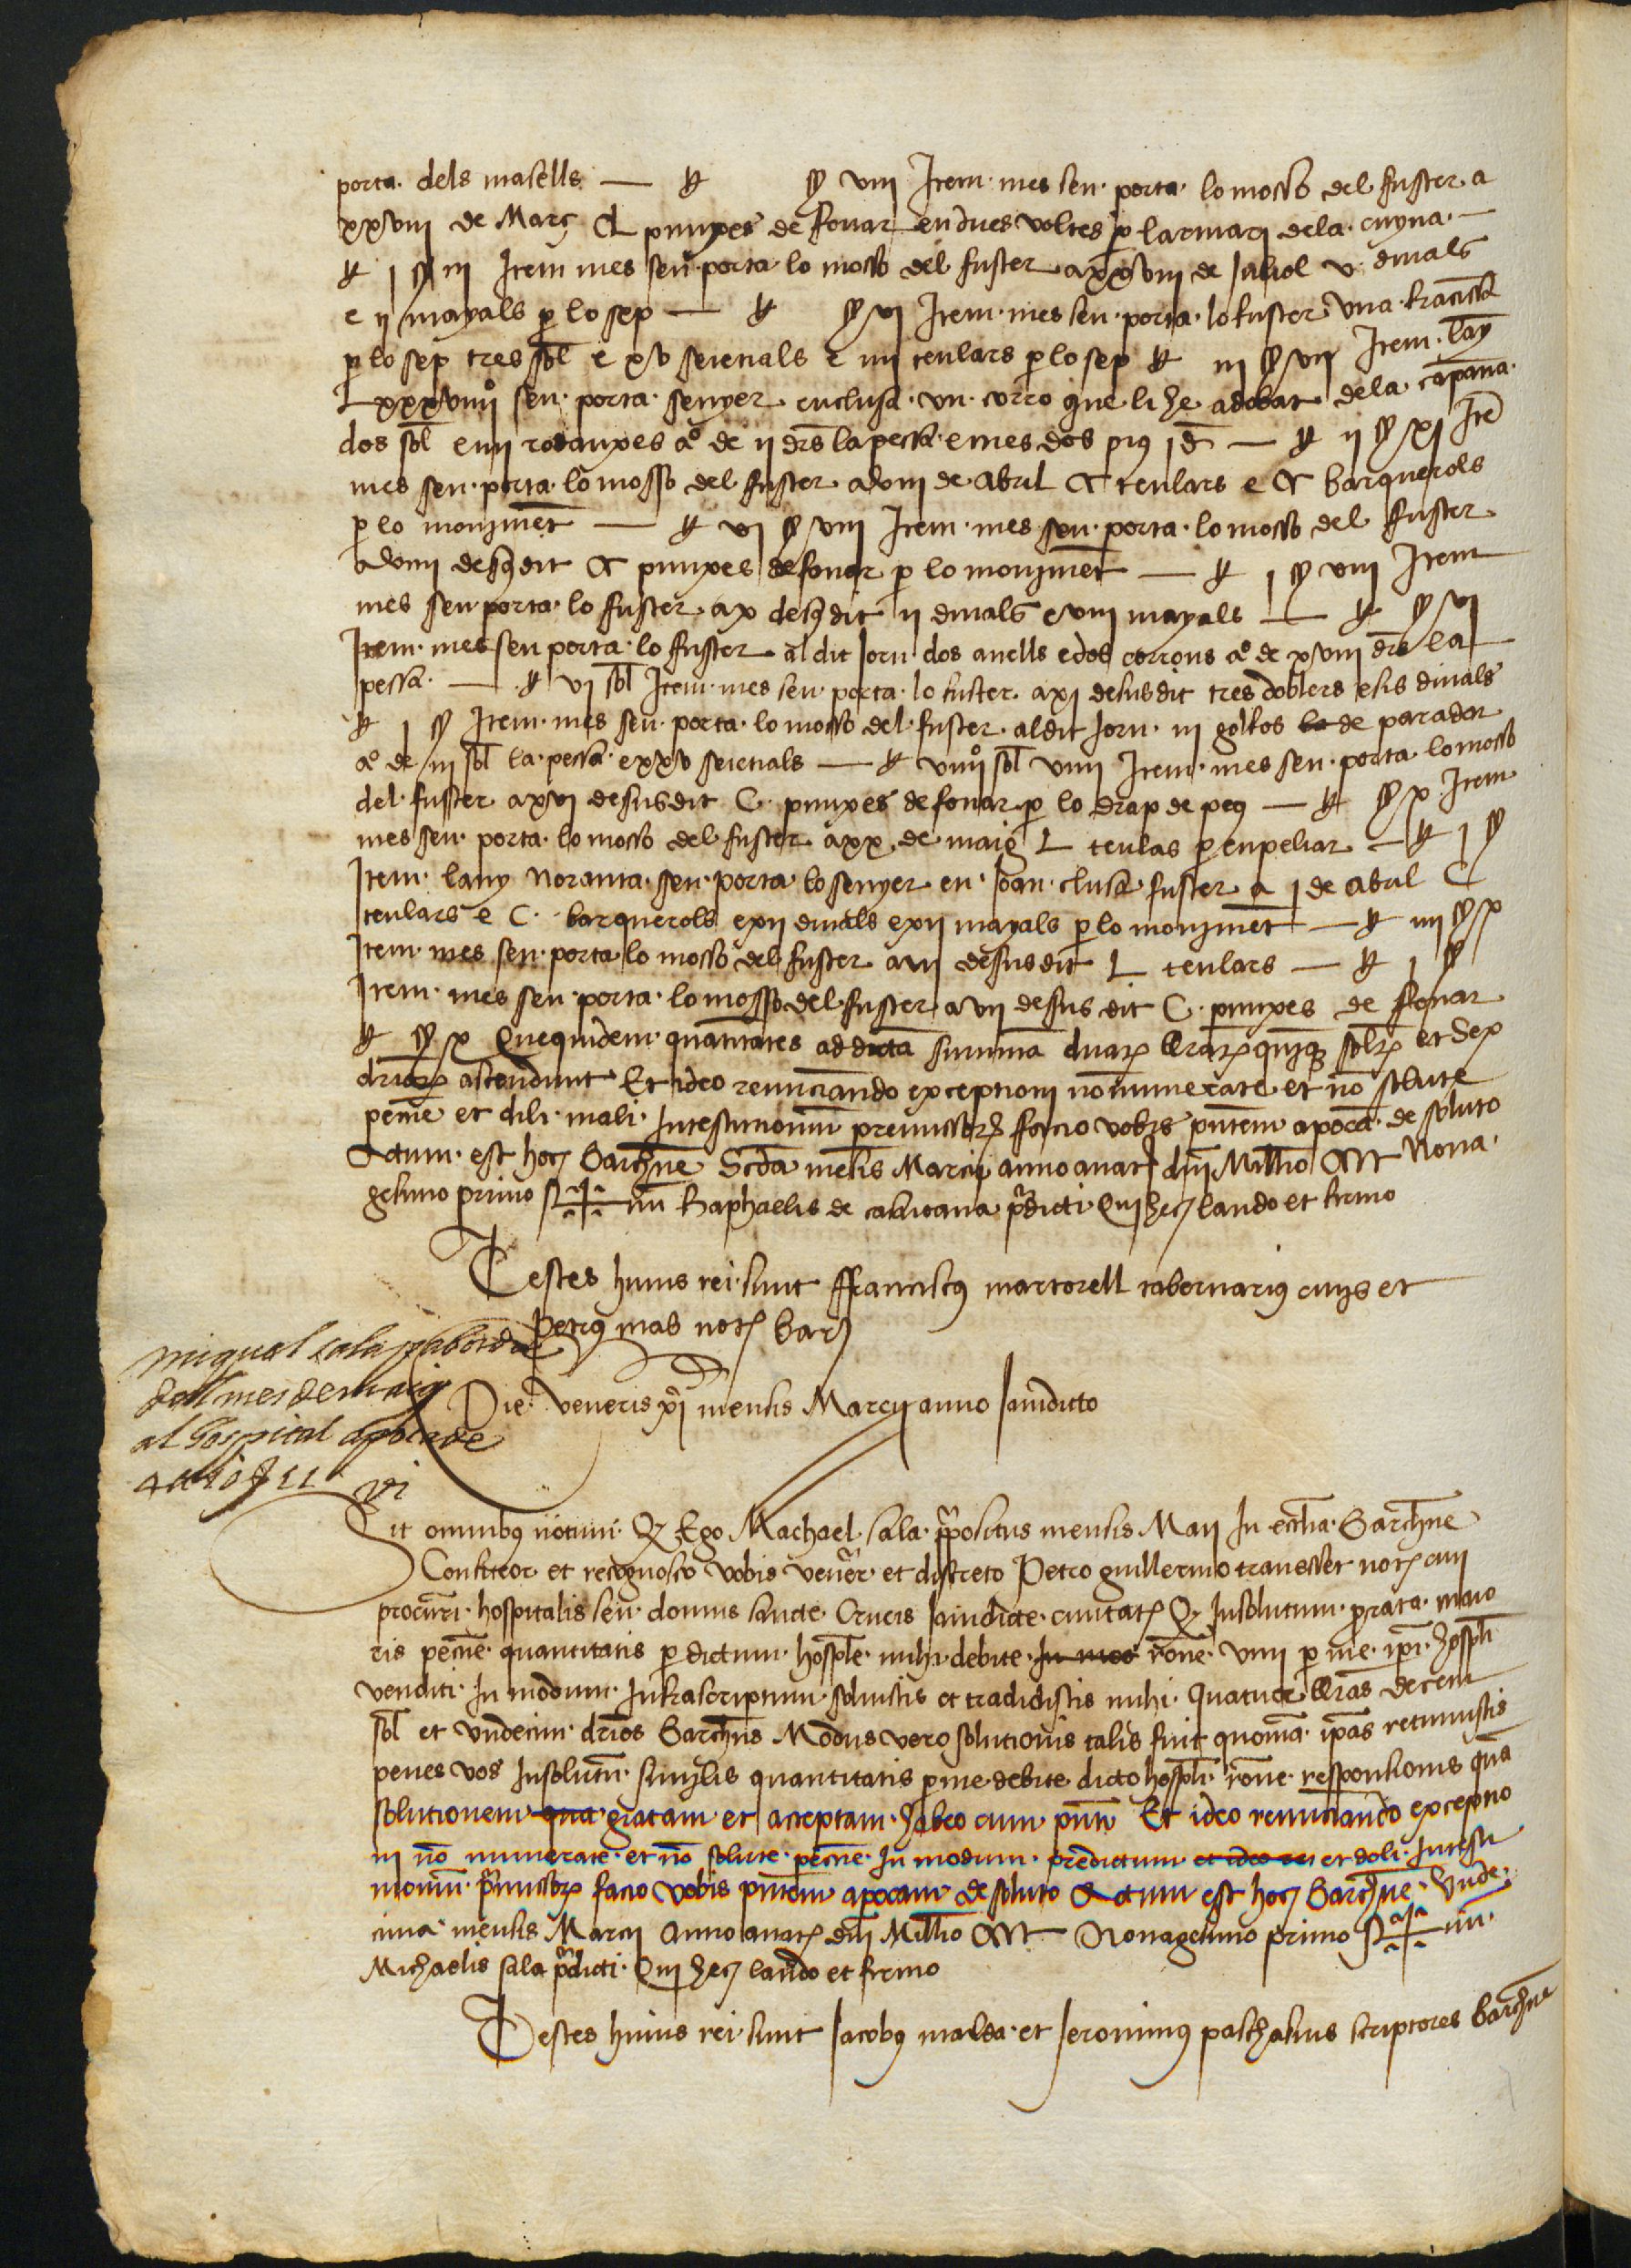 porta dels masells — ß ẏ viii Item mes sen porta lo mosso del fuster a
xxviii de Març CL punxes de fonar en dues voltes p larmari dela cuyna —
ß i ẏ iii Item mes sen porta lo mosso del fuster a xxviii de Juliol v dinals
e ii mayals p lo sep — ß ẏ vi Item mes sen porta lo fuster una francisca
p lo sep tres sol e xv seietials e iiii teulars p lo sep ß iii ẏ vii Item lany
Lxxxviiii sen porta senyer en clusa un corro que li he adobat dela capana
dos sol e iiii rodanxes ao de ii drs la pessa e mes dos pius i d — ß ii ẏ xi Ite
mes sen porta lo mosso del fuster a viii de Abril CC teulars e CC barquerols
p lo moniment — ß vi ẏ viii Item mes sen porta lo mosso del fuster
a viiii desusdit CC punxes de fonar p lo moniment — ß i ẏ viii Item
mes sen porta lo fuster a x desusdit ii dinals e viii mayals — ß ẏ vi
Item mes sen porta lo fuster al dit Jorn dos anells e dos corrons ao de xviii drs la
pessa — ß vi sol Item mes sen porta lo fuster a xi desusdit tres doblers e sis dinals
ß i ẏ Item mes sen porta lo mosso del fuster al dit Jorn iii golfos la de parador
ao de iii sol la pessa e xxv seietials — ß viiii sol viiii Item mes sen porta lo mosso
del fuster a xvi desusdit C punxes de fonar p lo drap de peus — ß ẏ x Item
mes sen porta lo mosso del fuster a xx de maig L teulas p enpeliar — ß i ẏ
Item lany noranta sen porta lo senyer en Joan clusa fuster a i de Abril C
teulars e C barquerols e xii dinals e xii mayals p lo moniment — ß iiii ẏ x
Item mes sen porta lo mosso del fuster a vii desusdit L teulars — ß i ẏ
Item mes sen porta lo mosso del fuster a vii desus dit C punxes de fonar
ß ẏ x Quequidem quantitates ad dicta summa duarz llrarz quinqz solrz et dex
driorz ascendunt Et ideo renunciando exceptioni no numerate et no solute
pecune et doli mali In testimonium premissorz facio vobis pntem apoca de soluto
Actum est hoc Barchne Scda mensis Marcii anno anat dni Millio CCCC Nona
gesimo primo Sig+num Raphaelis de predicti Qui hec laudo et firmo
Testes huius rei sunt ffranciscus martorell tabernarius civis et
Petrus mas not Bar
miquel sala pabordra
del mes de maig
al hospital apoca de
vi
Die veneris xi mensis Marcii anno Jamdicto
Sit omnibus notum Q Ego Machael sala ppositus mensis Maii In ecclia Barchne
Confiteor et recognosco vobis vener et discreto Petro guillermo not civi
procuri hospitalis seu domus sancte Crucis Jamdicte civitatz Q Insolutum prorata maio
ris pecune quantitatis p dictum hosple mihi debite In meo rone vini p me ipi hospli
venditi In modum Infrascriptum solvistis et tradidistis mihi Quatuor llras decem
sol et undecim drios Barchns Modus vero solutionis talis fuit quonia ipas retinuistis
penes vos In solutum similis quantitatis p me debite dicto hospli rone responsionis qua
solutionem qua gratam et acceptam habeo cum pnti Et ideo renunciando exceptio
ni no numerate et no solute pecune In modum predictum et ideo re et doli In testi
monium premissorz facio vobis pntem apocam de soluto Actum est hoc Barchne Unde
cima mensis Marcii Anno anat dni Millio CCCC Nonagesimo primo Sig+num
Michaelis sala predicti Qui hec laudo et firmo
Testes huius rei sunt Jacobus malda et Jeronimus paschasius scriptores Barchne